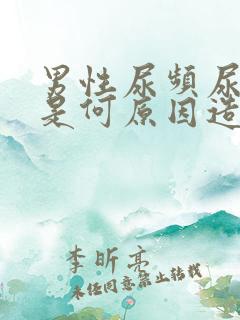 男性尿频尿
是何原因造
李昕亮
未经同意禁止转载